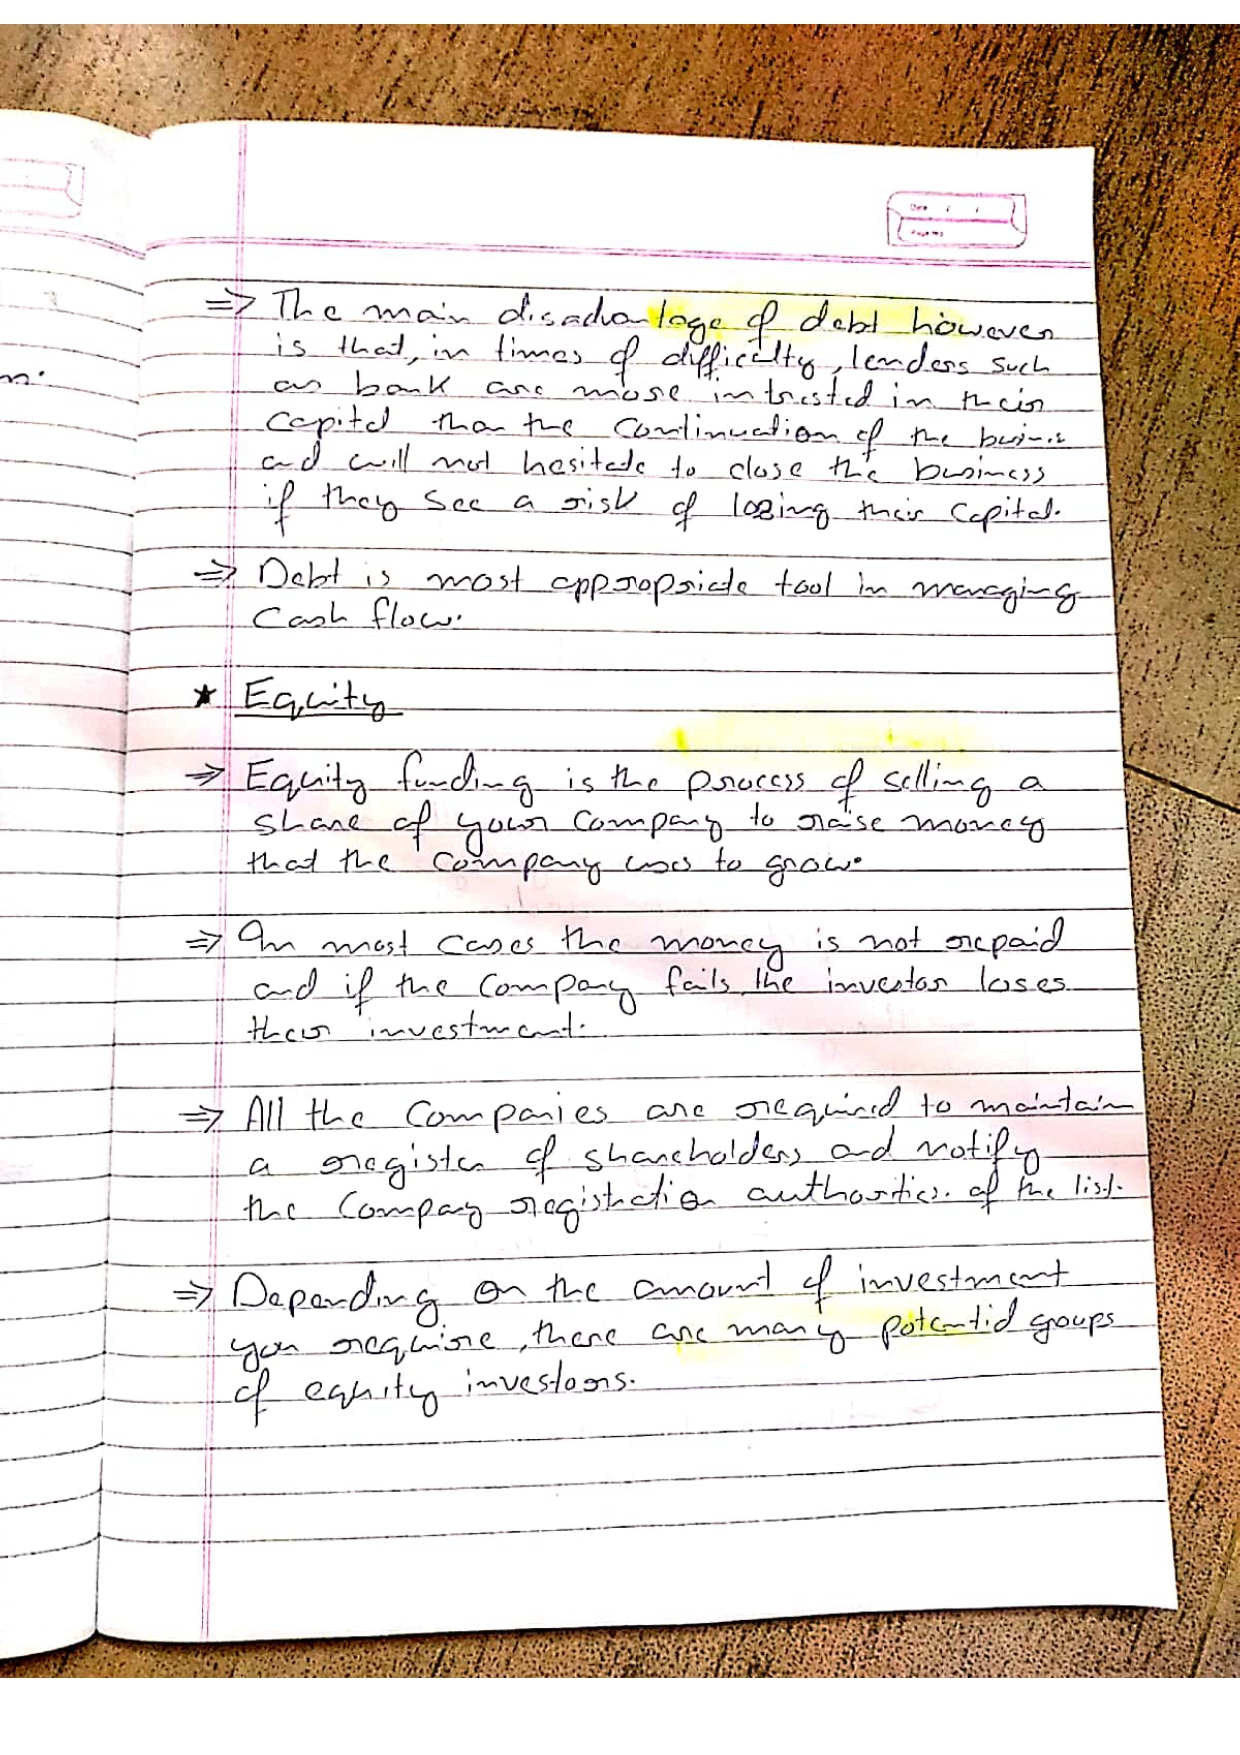 Date / /
Page No
⇒ The main disadvantage of debt however
is that, in times of difficulty, lenders such
as bank are more intrested in their
capital than the continuation of the
and will not hesitate to close the business
if they see a risk of losing their capital.
⇒ Debt is most appropriate tool in managing
Cash flow.
★ Equity
⇒ Equity funding is the process of selling a
share of your company to raise money
that the company uses to grow.
⇒ In most cases the money is not repaid
and if the company fails, the investor loses
their investment.
⇒ All the companies are required to maintain
a register of shareholders and notify
the company registration authorities. of the list.
⇒ Depending on the amount of investment
you require, there are many potential groups
of equity investors.